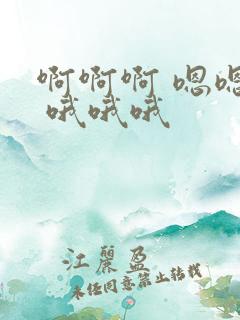 啊啊啊 嗯嗯
哦哦哦
江麗盈
未经同意禁止转载